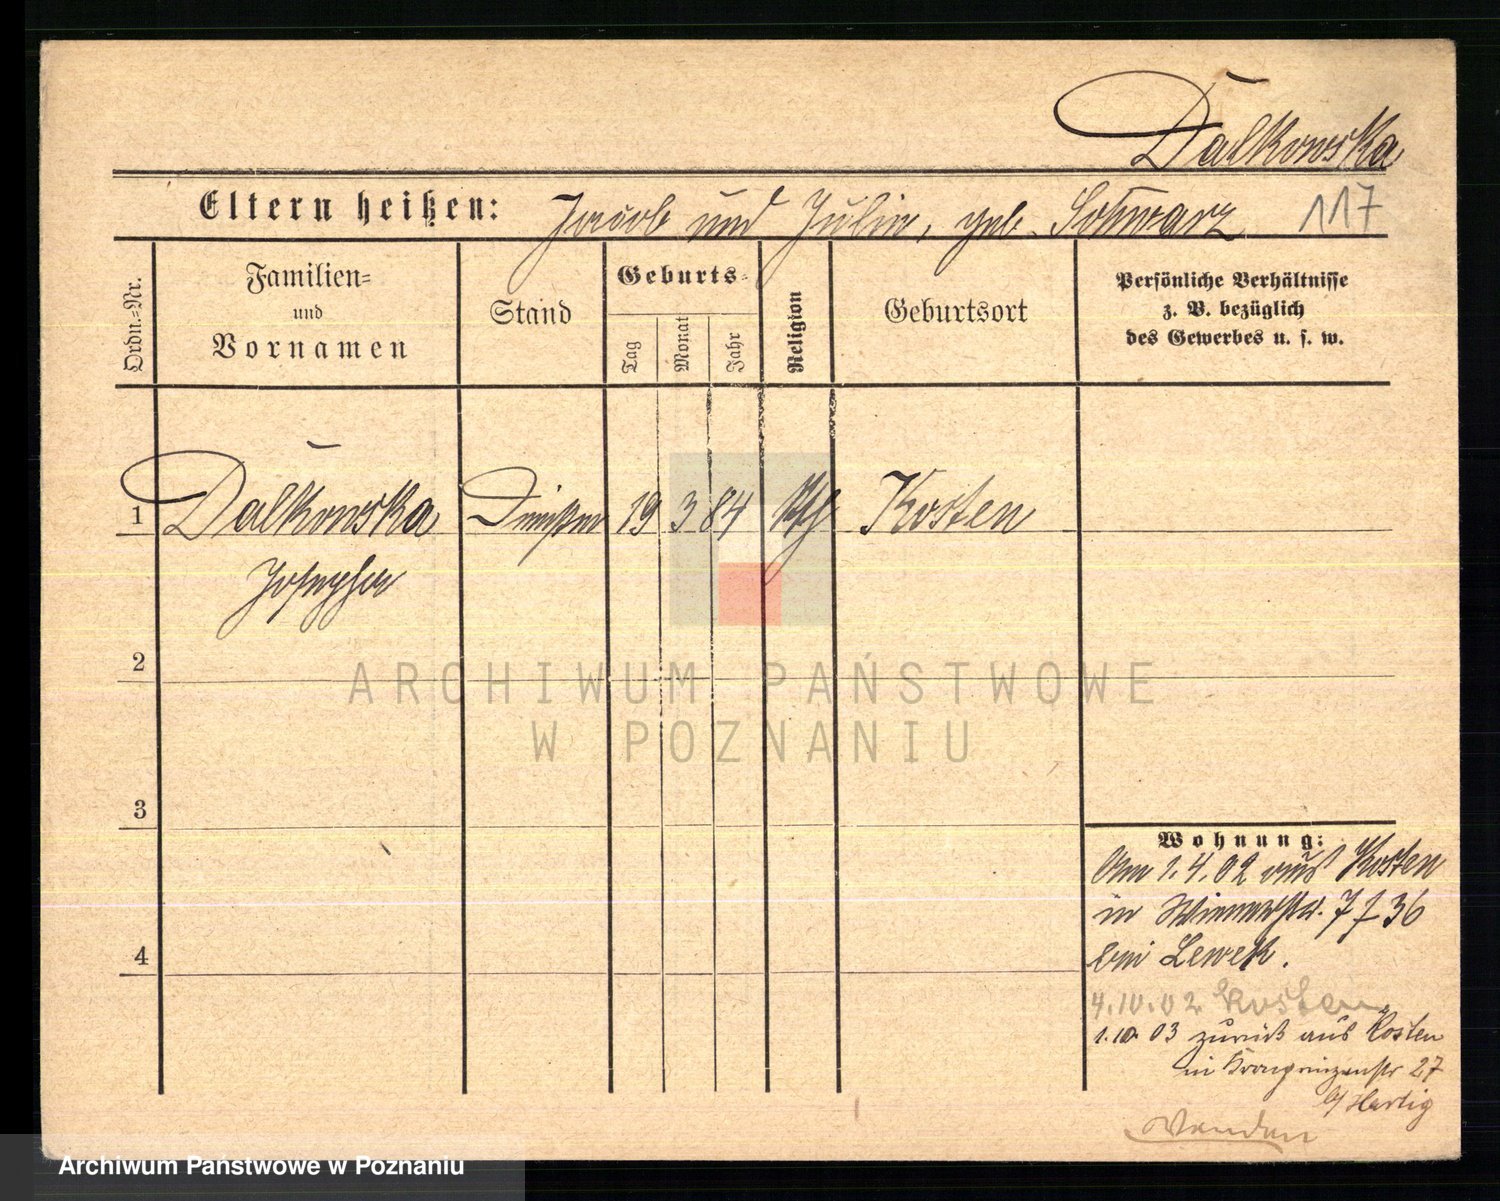 Dalkowska
Eltern heißen: Jacob und Julie, geb. Schwarz 117
Ordn.-Nr.
Familien-
und
Vornamen
Stand
Geburts-
Tag
Monat
Jahr
Religion
Geburtsort
Persönliche Verhältnisse
z. B. bezüglich
des Gewerbes u. s. w.
1 Dalkowska 19 3 84 kth Kosten
Josepha
2
ARCHIWUM PAŃSTWOWE
W POZNANIU
3
Wohnung:
Am 1.4.02 aus Kosten
in Wienerstr. 7 f 36
bei Lewek.
4
4.10.02 Kosten
1.10 03 zurück aus Kosten
in Kronprinzenstr 27
b/ Hartig
Archiwum Państwowe w Poznaniu